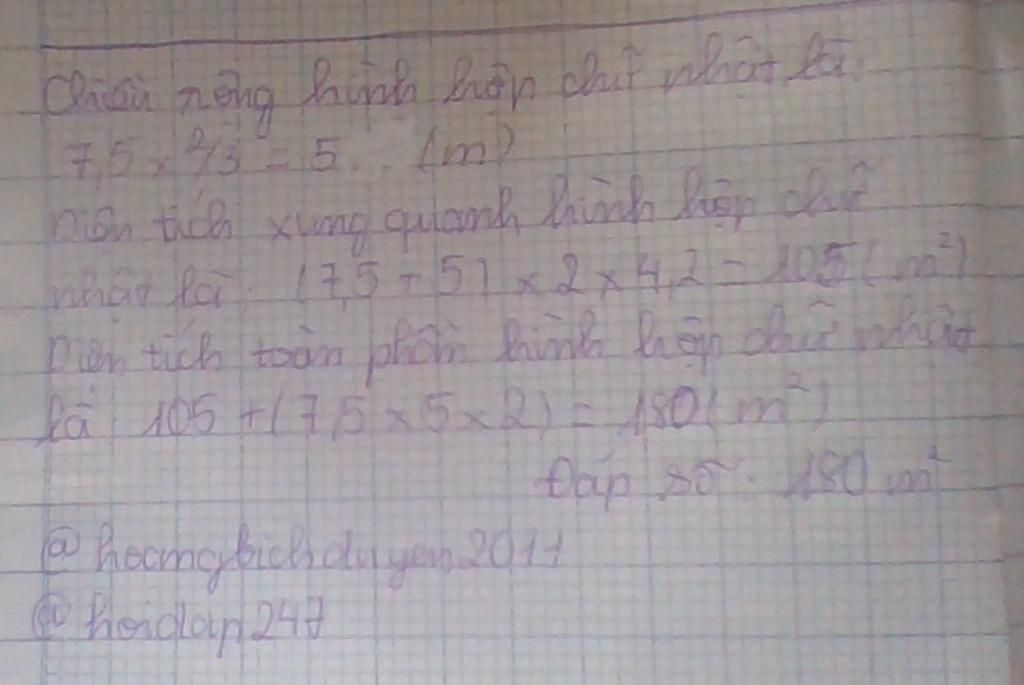 Chiều rộng hình hộp chữ nhật là:
7,5 x 2/3 = 5 (m)
Diện tích xung quanh hình hộp chữ
nhật là: (7,5 + 5) x 2 x 4,2 = 105 (m²)
Diện tích toàn phần hình hộp chữ nhật
là: 105 + (7,5 x 5 x 2) = 180 (m²)
Đáp số: 180 m²
@ hoangbichduyen2011
@ hoidap247